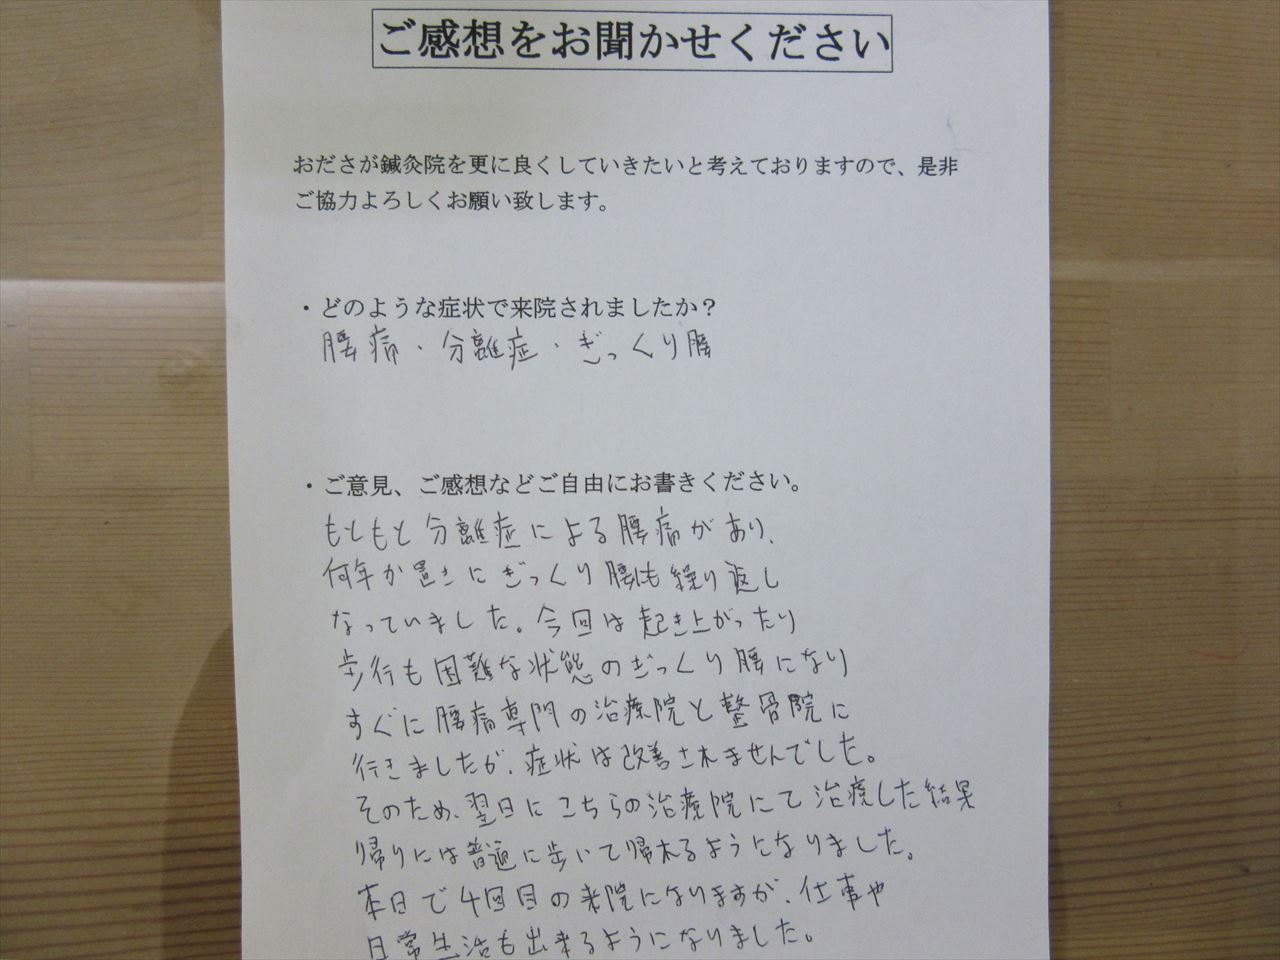 ご感想をお聞かせください
おださが鍼灸院を更に良くしていきたいと考えておりますので、是非
ご協力よろしくお願い致します。
・どのような症状で来院されましたか？
腰痛・分離症・ぎっくり腰
・ご意見、ご感想などご自由にお書きください。
もともと分離症による腰痛があり、
何年か置きにぎっくり腰も繰り返し
なっていました。今回は起き上がったり
歩行も困難な状態のぎっくり腰になり
すぐに腰痛専門の治療院と整骨院に
行きましたが、症状は改善されませんでした。
そのため、翌日にこちらの治療院にて治療した結果
帰りには普通に歩いて帰れるようになりました。
本日で4回目の来院になりますが、仕事や
日常生活も出来るようになりました。